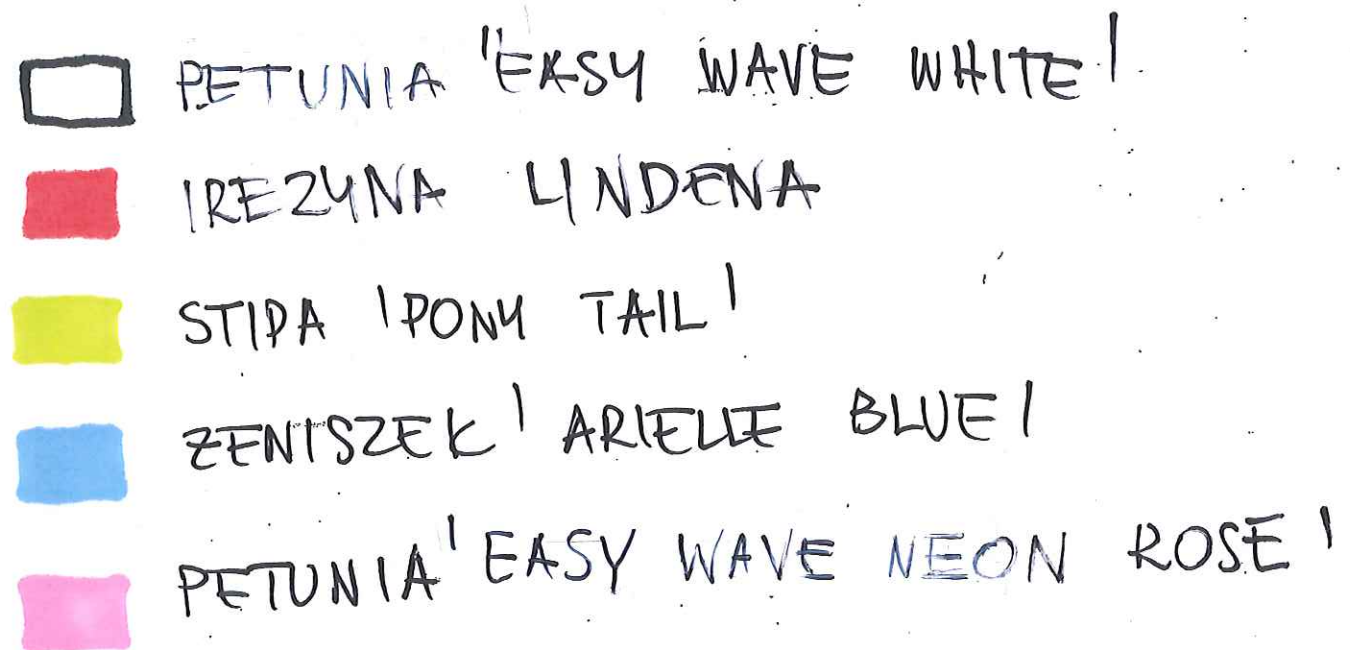 PETUNIA 'EASY WAVE WHITE'
IREZYNA LINDENA
STIPA 'PONY TAIL'
ZENISZEK 'ARIELLE BLUE'
PETUNIA 'EASY WAVE NEON ROSE'